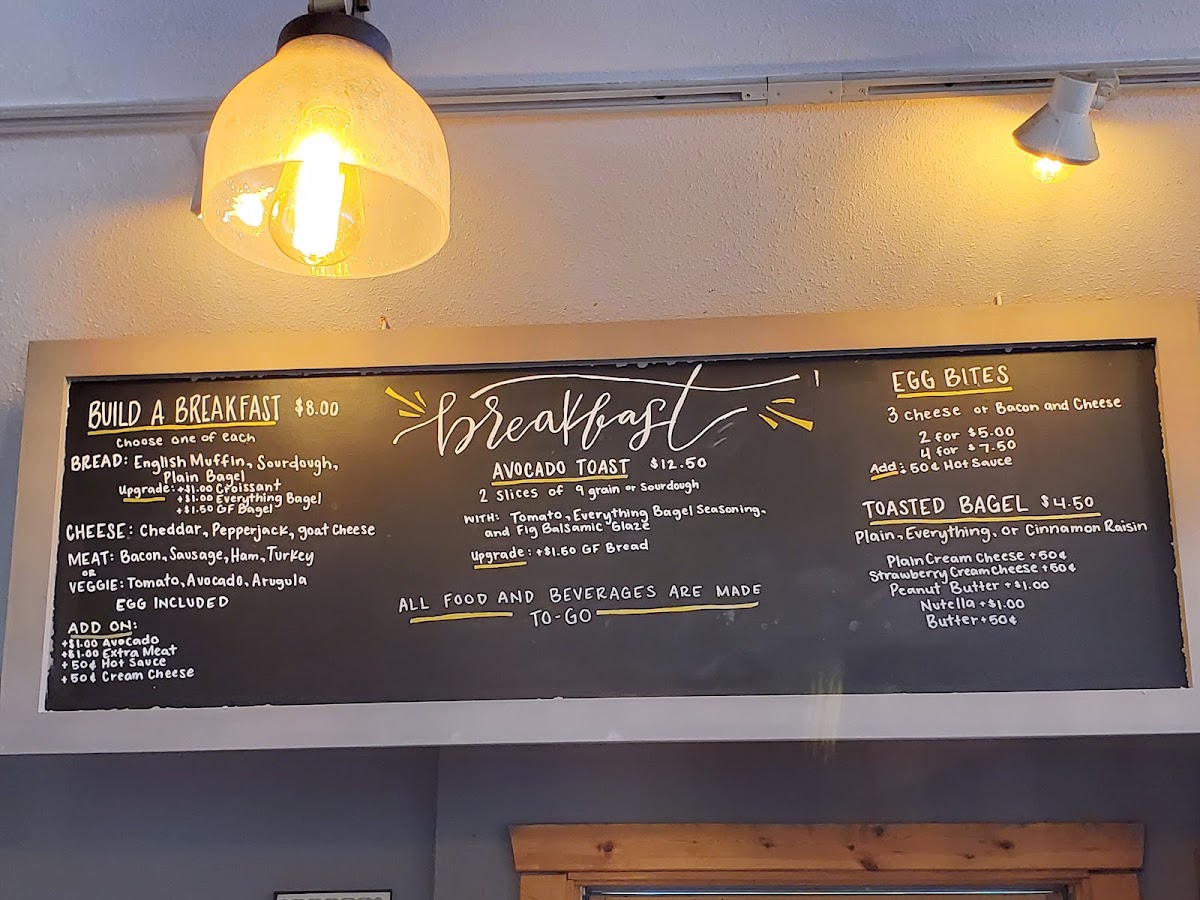 BUILD A BREAKFAST $8.00
Choose one of each
BREAD: English Muffin, Sourdough,
Plain Bagel
Upgrade: +$1.00 Croissant
+$1.00 Everything Bagel
+$1.50 GF Bagel
CHEESE: Cheddar, Pepperjack, goat Cheese
MEAT: Bacon, Sausage, Ham, Turkey
OR
VEGGIE: Tomato, Avocado, Arugula
EGG INCLUDED
ADD ON:
+$1.00 Avocado
+$1.00 Extra Meat
+50¢ Hot Sauce
+50¢ Cream Cheese
breakfast
AVOCADO TOAST $12.50
2 slices of 9 grain or Sourdough
WITH: Tomato, Everything Bagel Seasoning,
and Fig Balsamic Glaze
Upgrade: +$1.50 GF Bread
ALL FOOD AND BEVERAGES ARE MADE
TO-GO
EGG BITES
3 cheese or Bacon and Cheese
2 for $5.00
4 for $7.50
Add: 50¢ Hot Sauce
TOASTED BAGEL $4.50
Plain, Everything, or Cinnamon Raisin
Plain Cream Cheese +50¢
Strawberry Cream Cheese +50¢
Peanut Butter +$1.00
Nutella +$1.00
Butter +50¢